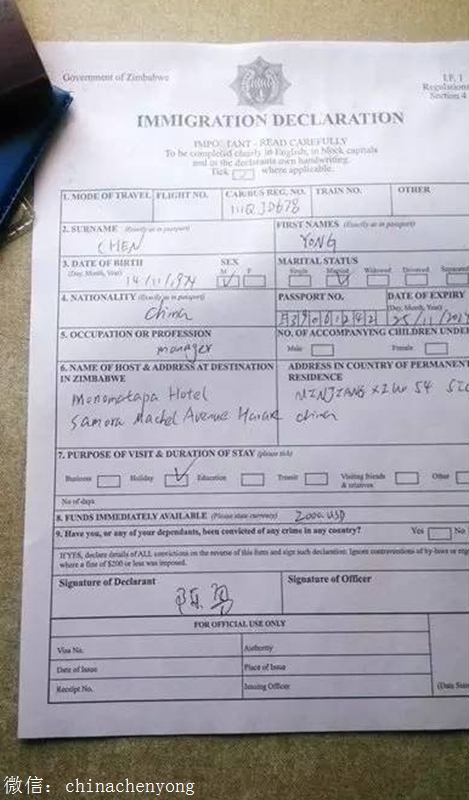 Government of Zimbabwe
I.F. 1
Regulations
Section 4
IMMIGRATION DECLARATION
IMPORTANT - READ CAREFULLY
To be completed clearly in English, in block capitals
and in the declarants own handwriting.
Tick ✓ where applicable.
1. MODE OF TRAVEL FLIGHT NO. CAR/BUS REG, NO. TRAIN NO. OTHER
2. SURNAME (Exactly as in passport) FIRST NAMES (Exactly as in passport)
CHEN YONG
3. DATE OF BIRTH SEX MARITAL STATUS
(Day, Month, Year) M F Single Married Widowed Divorced Separated
4. NATIONALITY (Exactly as in passport) PASSPORT NO. DATE OF EXPIRY
(Day, Month, Year)
China
5. OCCUPATION OR PROFESSION NO. OF ACCOMPANYING CHILDREN UNDER
manager Male Female
6. NAME OF HOST & ADDRESS AT DESTINATION IN ZIMBABWE
Monomatapa Hotel
Samora Machel Avenue Harare
ADDRESS IN COUNTRY OF PERMANENT
RESIDENCE
China
7. PURPOSE OF VISIT & DURATION OF STAY (please tick)
Business Holiday ✓ Education Transit Visiting friends & relatives Other
No of days
8. FUNDS IMMEDIATELY AVAILABLE (Please state currency) 2000 USD
9. Have you, or any of your dependants, been convicted of any crime in any country? Yes No
If YES, declare details of ALL convictions on the reverse of this form and sign such declaration. Ignore contraventions of by-laws or
where a fine of $200 or less was imposed.
Signature of Declarant Signature of Officer
FOR OFFICIAL USE ONLY
Visa No. Authority
Date of Issue Place of Issue
Receipt No. Issuing Officer
微信：chinachenyong